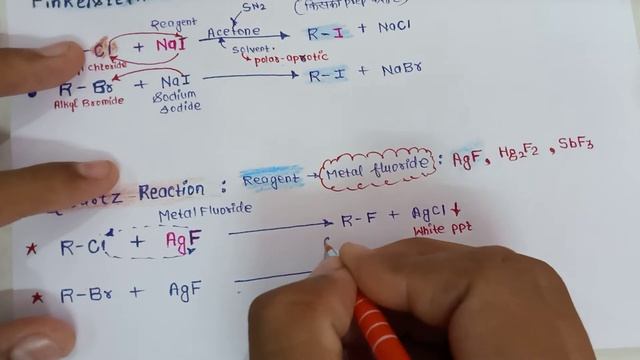 SN2
Reagent
Cl + NaI Acetone R-I + NaCl
chloride Solvent.
polar-aprotic
R-Br + NaI R-I + NaBr
Alkyl Bromide Sodium
Iodide
Reaction : Reagent → Metal fluoride : AgF, Hg2F2, SbF3
Metal Fluoride
★ R-Cl + AgF R-F + AgCl ↓
White ppt
★ R-Br + AgF